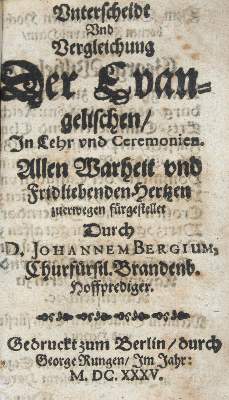 Unterscheidt
Und
Vergleichung
Der Evan-
gelischen/
In Lehr vnd Ceremonien.
Allen Warheit vnd
Fridliebenden-Hertzen
zuerwegen fürgestellet
Durch
D. JOHANNEM BERGIUM,
Churfürstl. Brandenb.
Hoffprediger.
Gedruckt zum Berlin/ durch
George Rungen/ Im Jahr:
M. DC. XXXV.